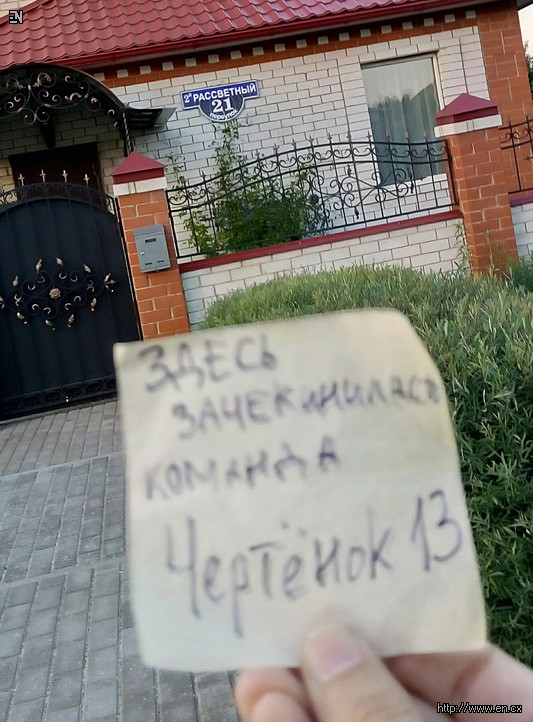 EN
2й РАССВЕТНЫЙ
21
переулок
ЗДЕСЬ
ЗАЧЕКИНИЛАСЬ
КОМАНДА
Чертёнок 13
http://www.en.cx